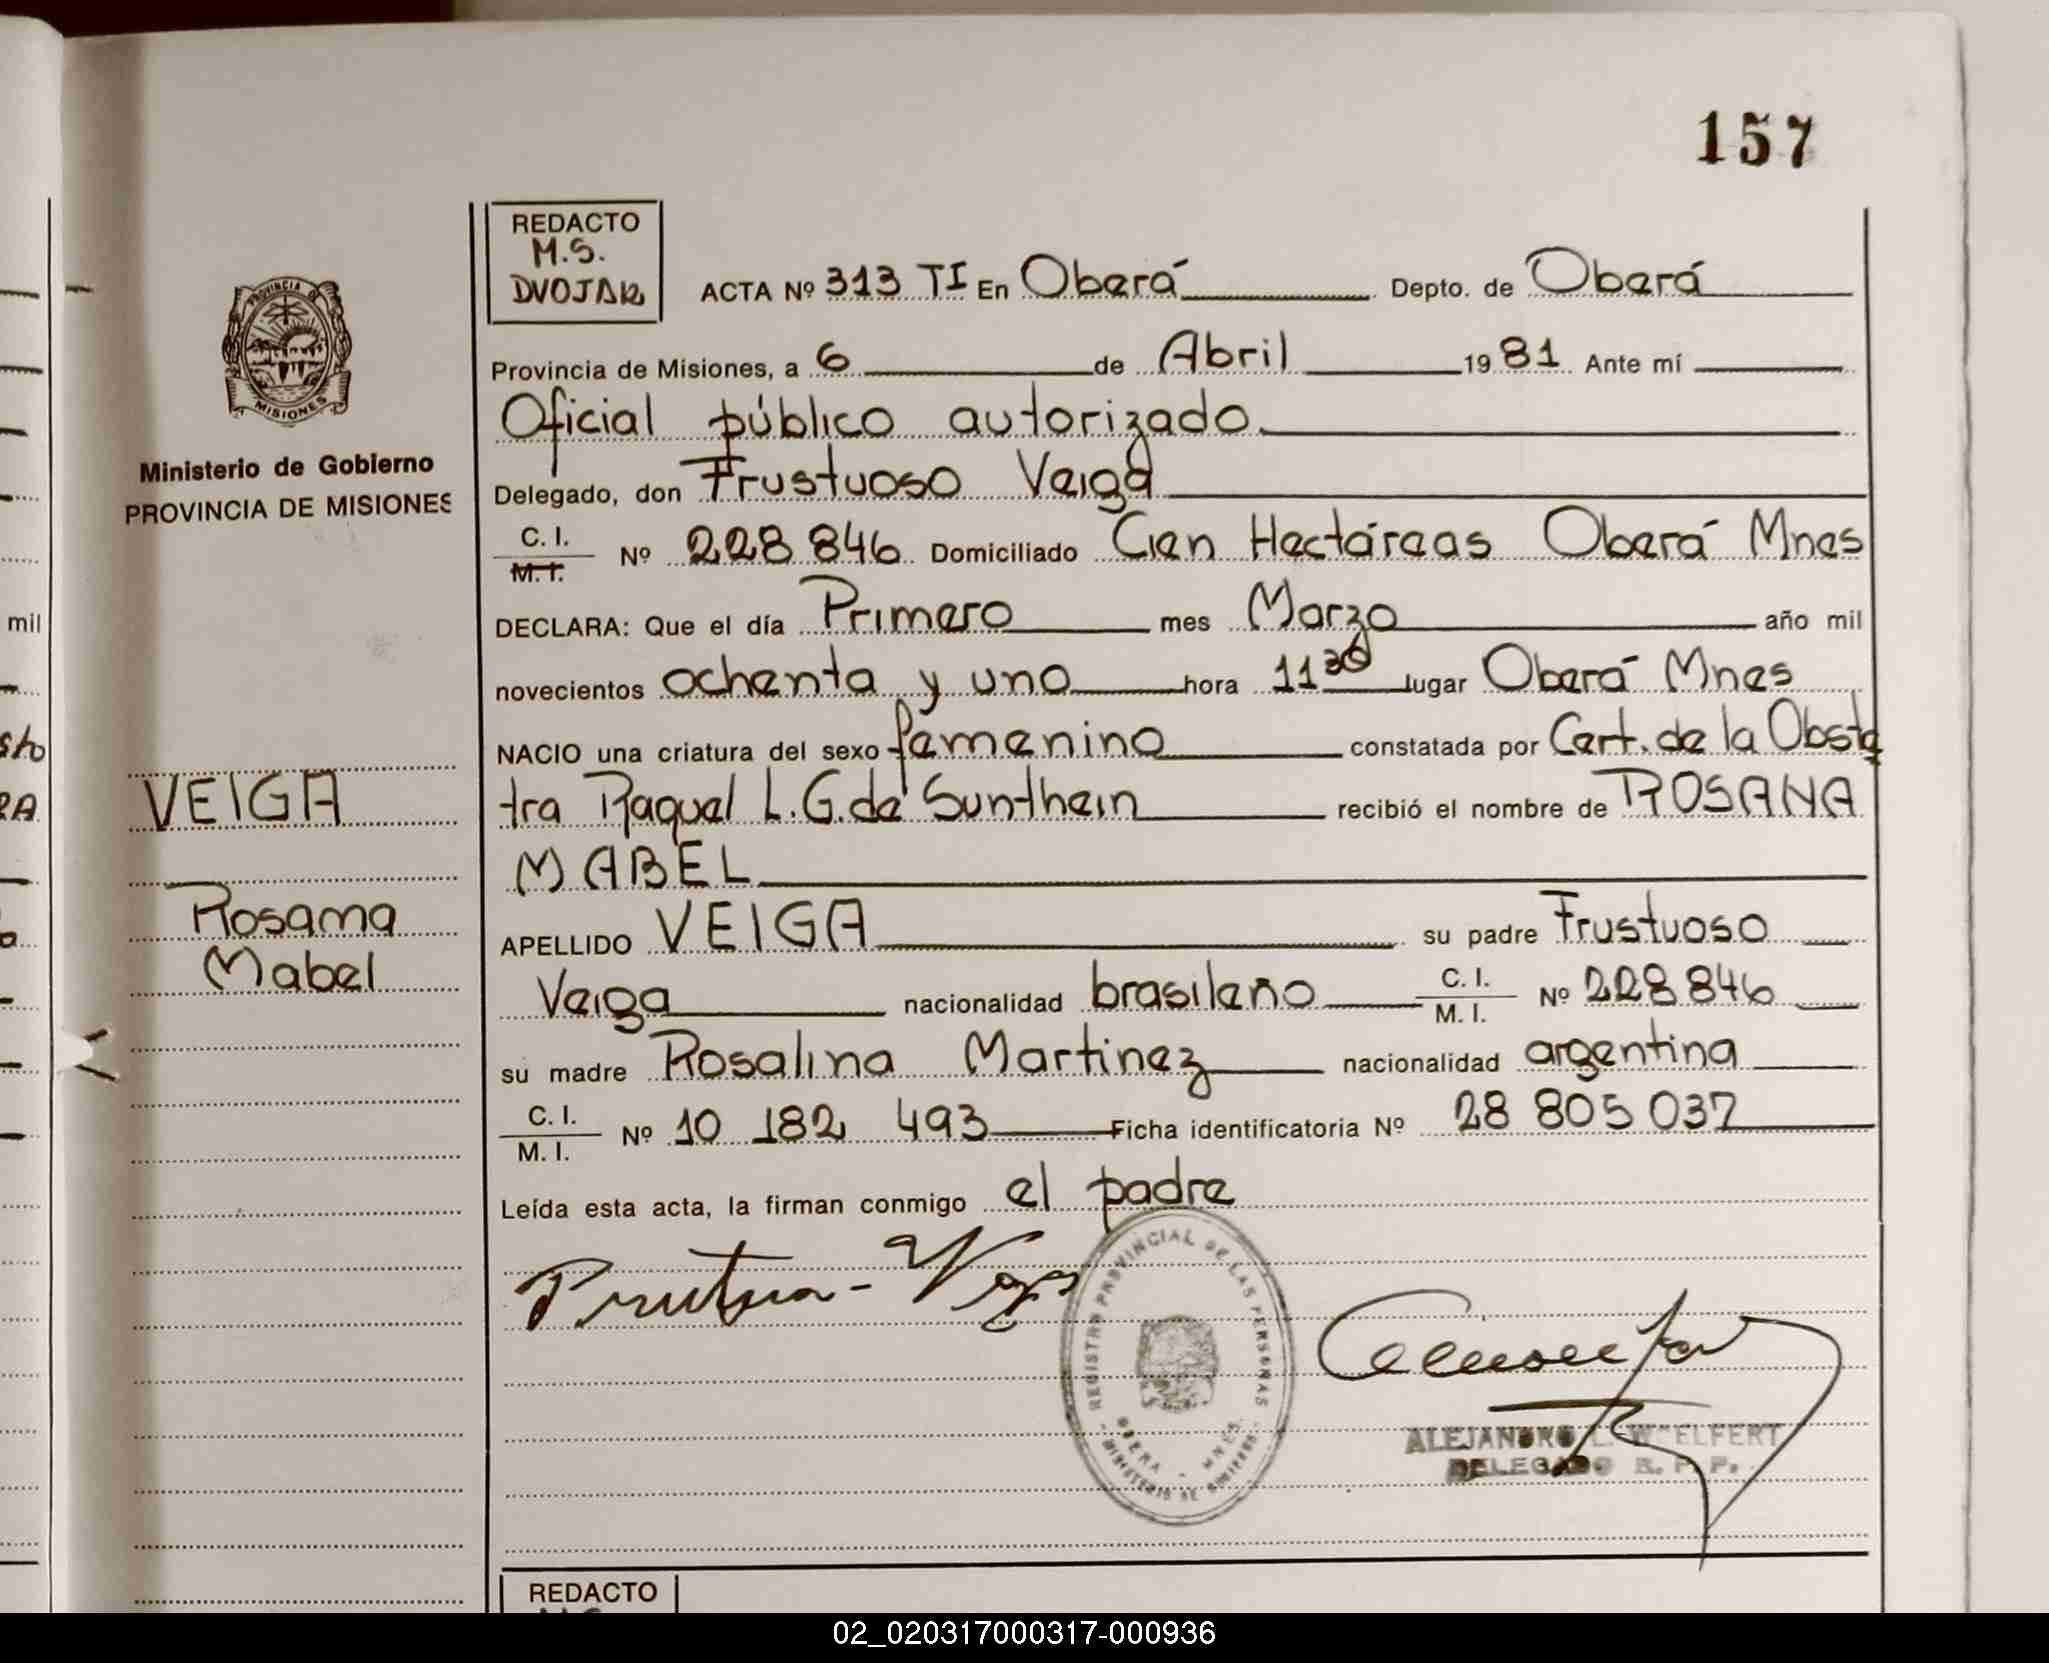 157
REDACTO
M.S.
DVOJAK
ACTA Nº 313 TI En Oberá Depto. de Oberá
Provincia de Misiones, a 6 de Abril 1981 Ante mí
Oficial público autorizado
Delegado, don Frustuoso Veiga
C. I.
M. I.
Nº 228 846 Domiciliado Cien Hectáreas Oberá Mnes
DECLARA: Que el día Primero mes Marzo año mil
novecientos ochenta y uno hora 11 30 lugar Oberá Mnes
NACIO una criatura del sexo femenino constatada por Cert. de la Obste
tra Raquel L. G. de Sunthein recibió el nombre de ROSANA
MABEL
APELLIDO VEIGA su padre Frustuoso
Veiga nacionalidad brasileño C. I. M. I. Nº 228 846
su madre Rosalina Martinez nacionalidad argentina
C. I.
M. I.
Nº 10 182 493 Ficha identificatoria Nº 28 805 037
Leída esta acta, la firman conmigo el padre
REGISTRO PROVINCIAL DE LAS PERSONAS
OBERA - MNES.
MINISTERIO DE GOBIERNO
ALEJANDRO L. WELFERT
DELEGADO R. P. P.
REDACTO
PROVINCIA DE
MISIONES
Ministerio de Gobierno
PROVINCIA DE MISIONES
VEIGA
Rosana
Mabel
mil
sto
RA
02_020317000317-000936